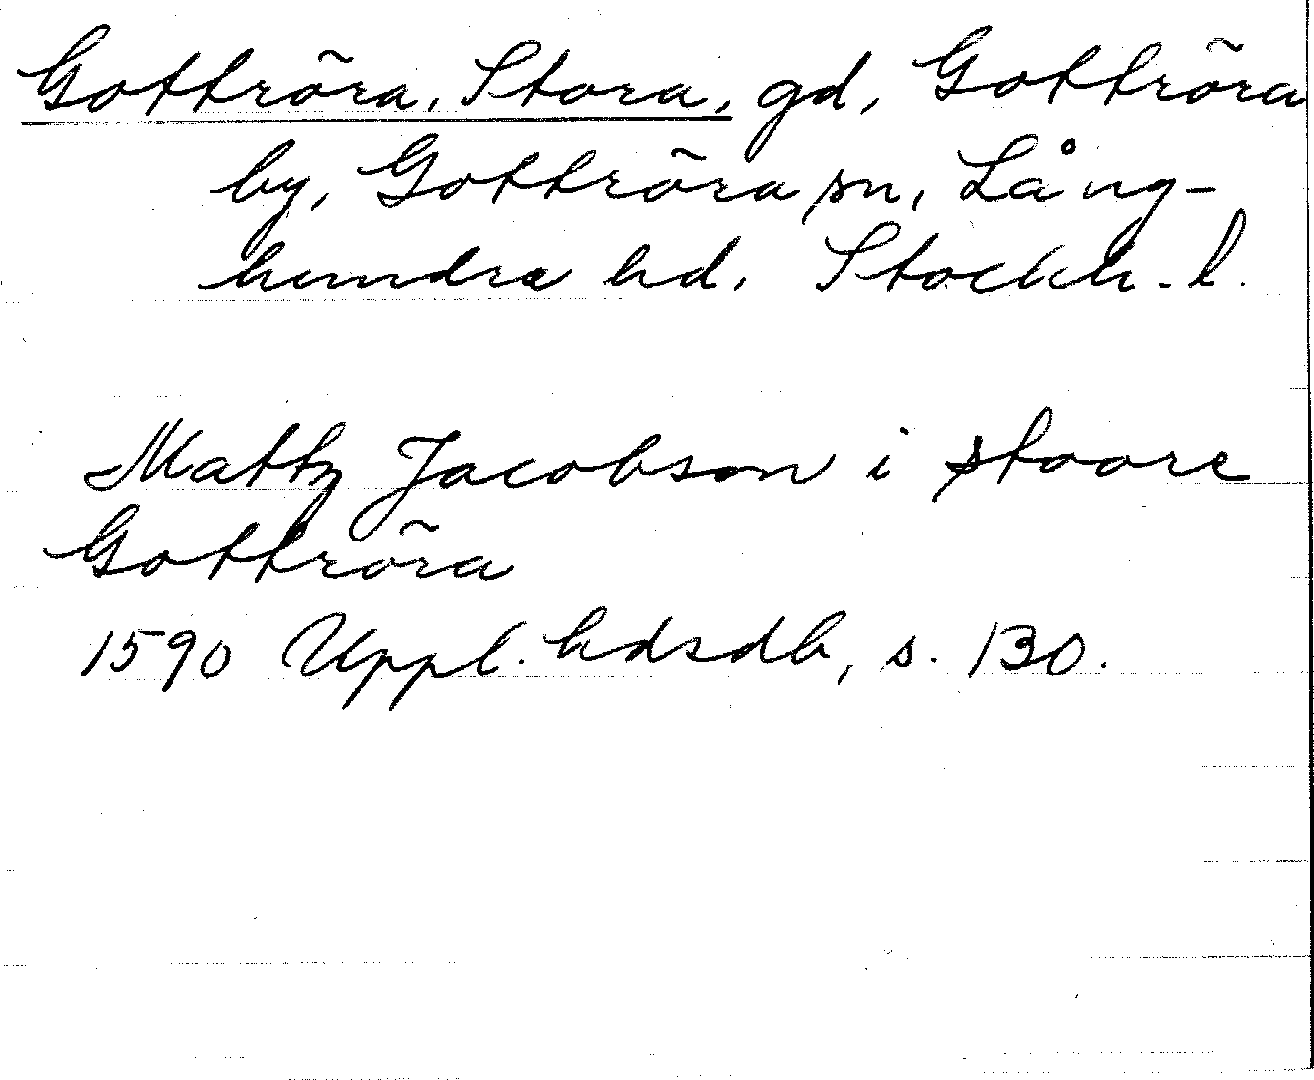 Gottröra, Stora, gd, Gottröra
by, Gottröra sn, Lång-
hundra hd. Stockh. l.
Mattz Jacobson i stoore
Gottröra
1590 Uppl. hdsdb, s. 130.